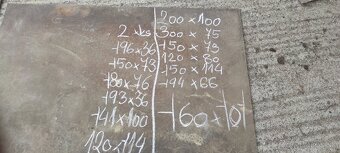 2 x ks
196 x 36
150 x 73
180 x 76
193 x 36
141 x 100
120 x 114
200 x 100
300 x 75
150 x 73
120 x 80
150 x 114
194 x 66
160 x 101